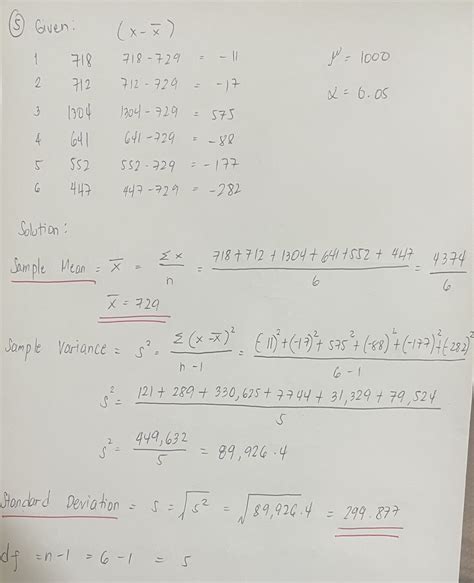 ⑤ Given: (x - x̄)
1 718 718 - 729 = -11 μ = 1000
2 712 712 - 729 = -17 α = 0.05
3 1304 1304 - 729 = 575
4 641 641 - 729 = -88
5 552 552 - 729 = -177
6 447 447 - 729 = -282
Solution:
Sample Mean = x̄ = Σx / n = 718 + 712 + 1304 + 641 + 552 + 447 / 6 = 4374 / 6
x̄ = 729
Sample Variance = s² = Σ(x - x̄)² / n - 1 = (-11)² + (-17)² + 575² + (-88)² + (-177)² + (-282)² / 6 - 1
s² = 121 + 289 + 330,625 + 7744 + 31,329 + 79,524 / 5
s² = 449,632 / 5 = 89,926.4
Standard Deviation = s = √s² = √89,926.4 = 299.877
df = n - 1 = 6 - 1 = 5